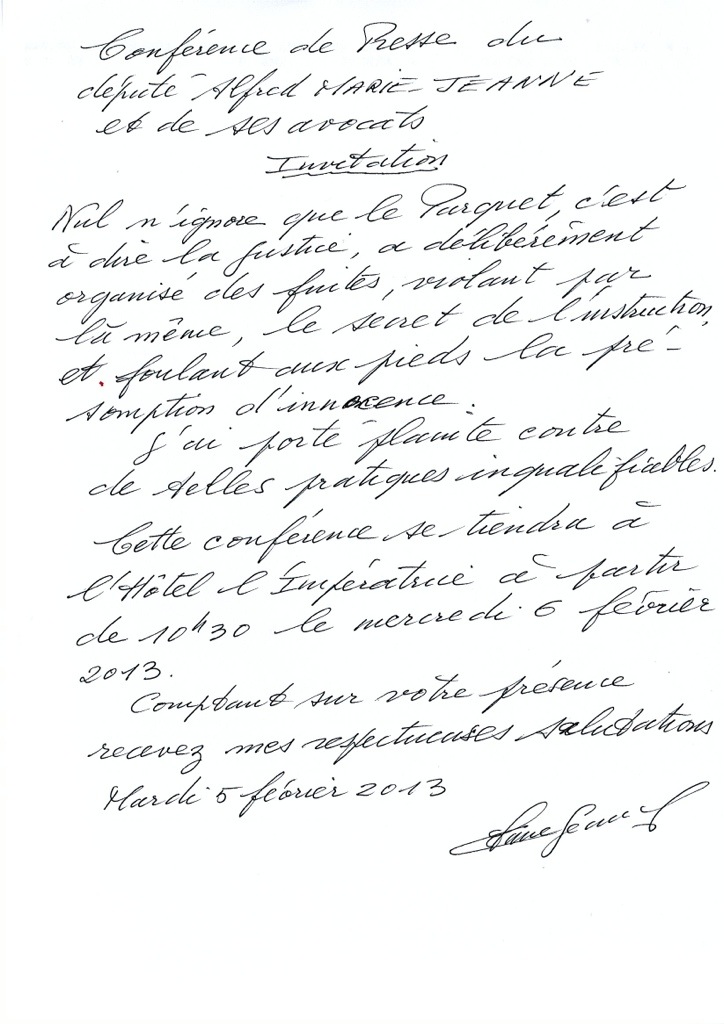 Conférence de Presse du
député Alfred MARIE-JEANNE
et de ses avocats
Invitation
Nul n'ignore que le Parquet, c'est
à dire la justice, a délibérément
organisé des fuites, violant par
là même, le secret de l'instruction,
et foulant aux pieds la pré-
somption d'innocence.
J'ai porté plainte contre
de telles pratiques inqualifiables.
Cette conférence se tiendra à
l'Hôtel l'Impératrice à partir
de 10h30 le mercredi 6 février
2013.
Comptant sur votre présence
recevez mes respectueuses salutations
Mardi 5 février 2013